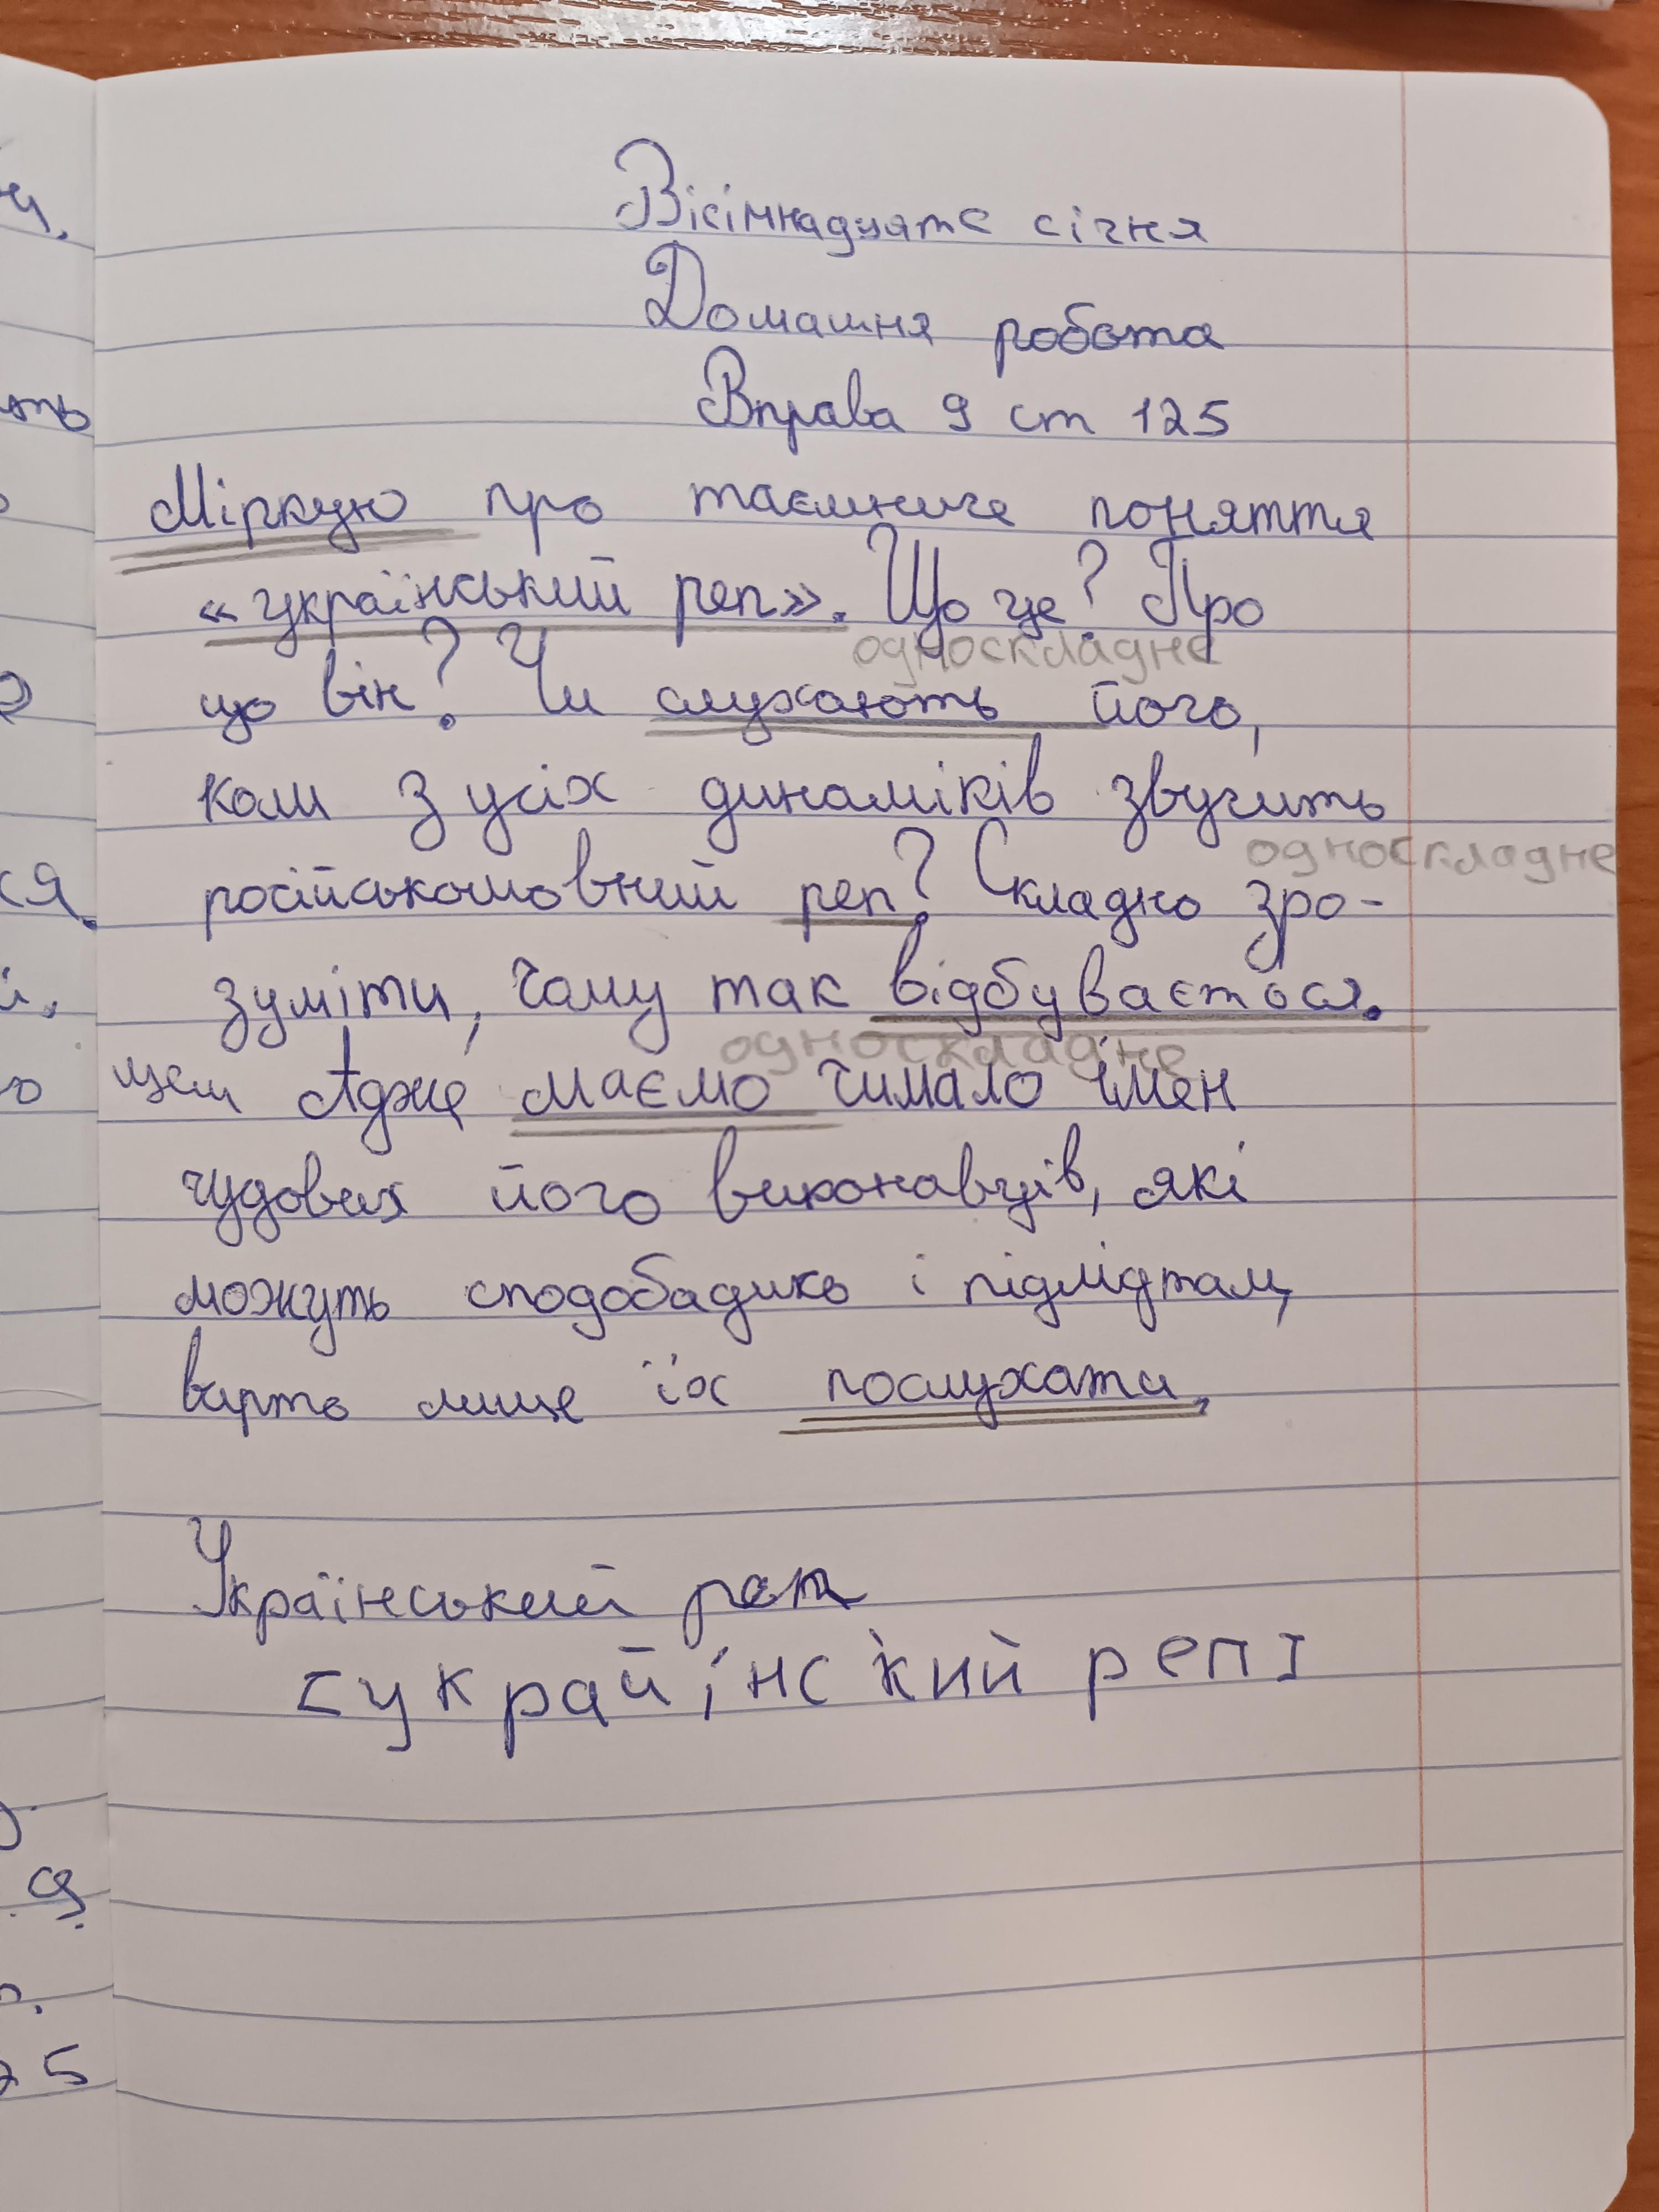 Вісімнадцяте січня
Домашня робота
Вправа 9 ст 125
Міркую про таємниче поняття
«український реп». Що це? Про
односкладне
що він? Чи слухають його,
коли з усіх динаміків звучить
односкладне
російськомовний реп? Складно зро-
зуміти, чому так відбувається.
односкладне
Адже маємо чимало імен
чудових його виконавців, які
можуть і підліткам,
варто лише їх послухати.
Український реп
[украйінс'кий реп]